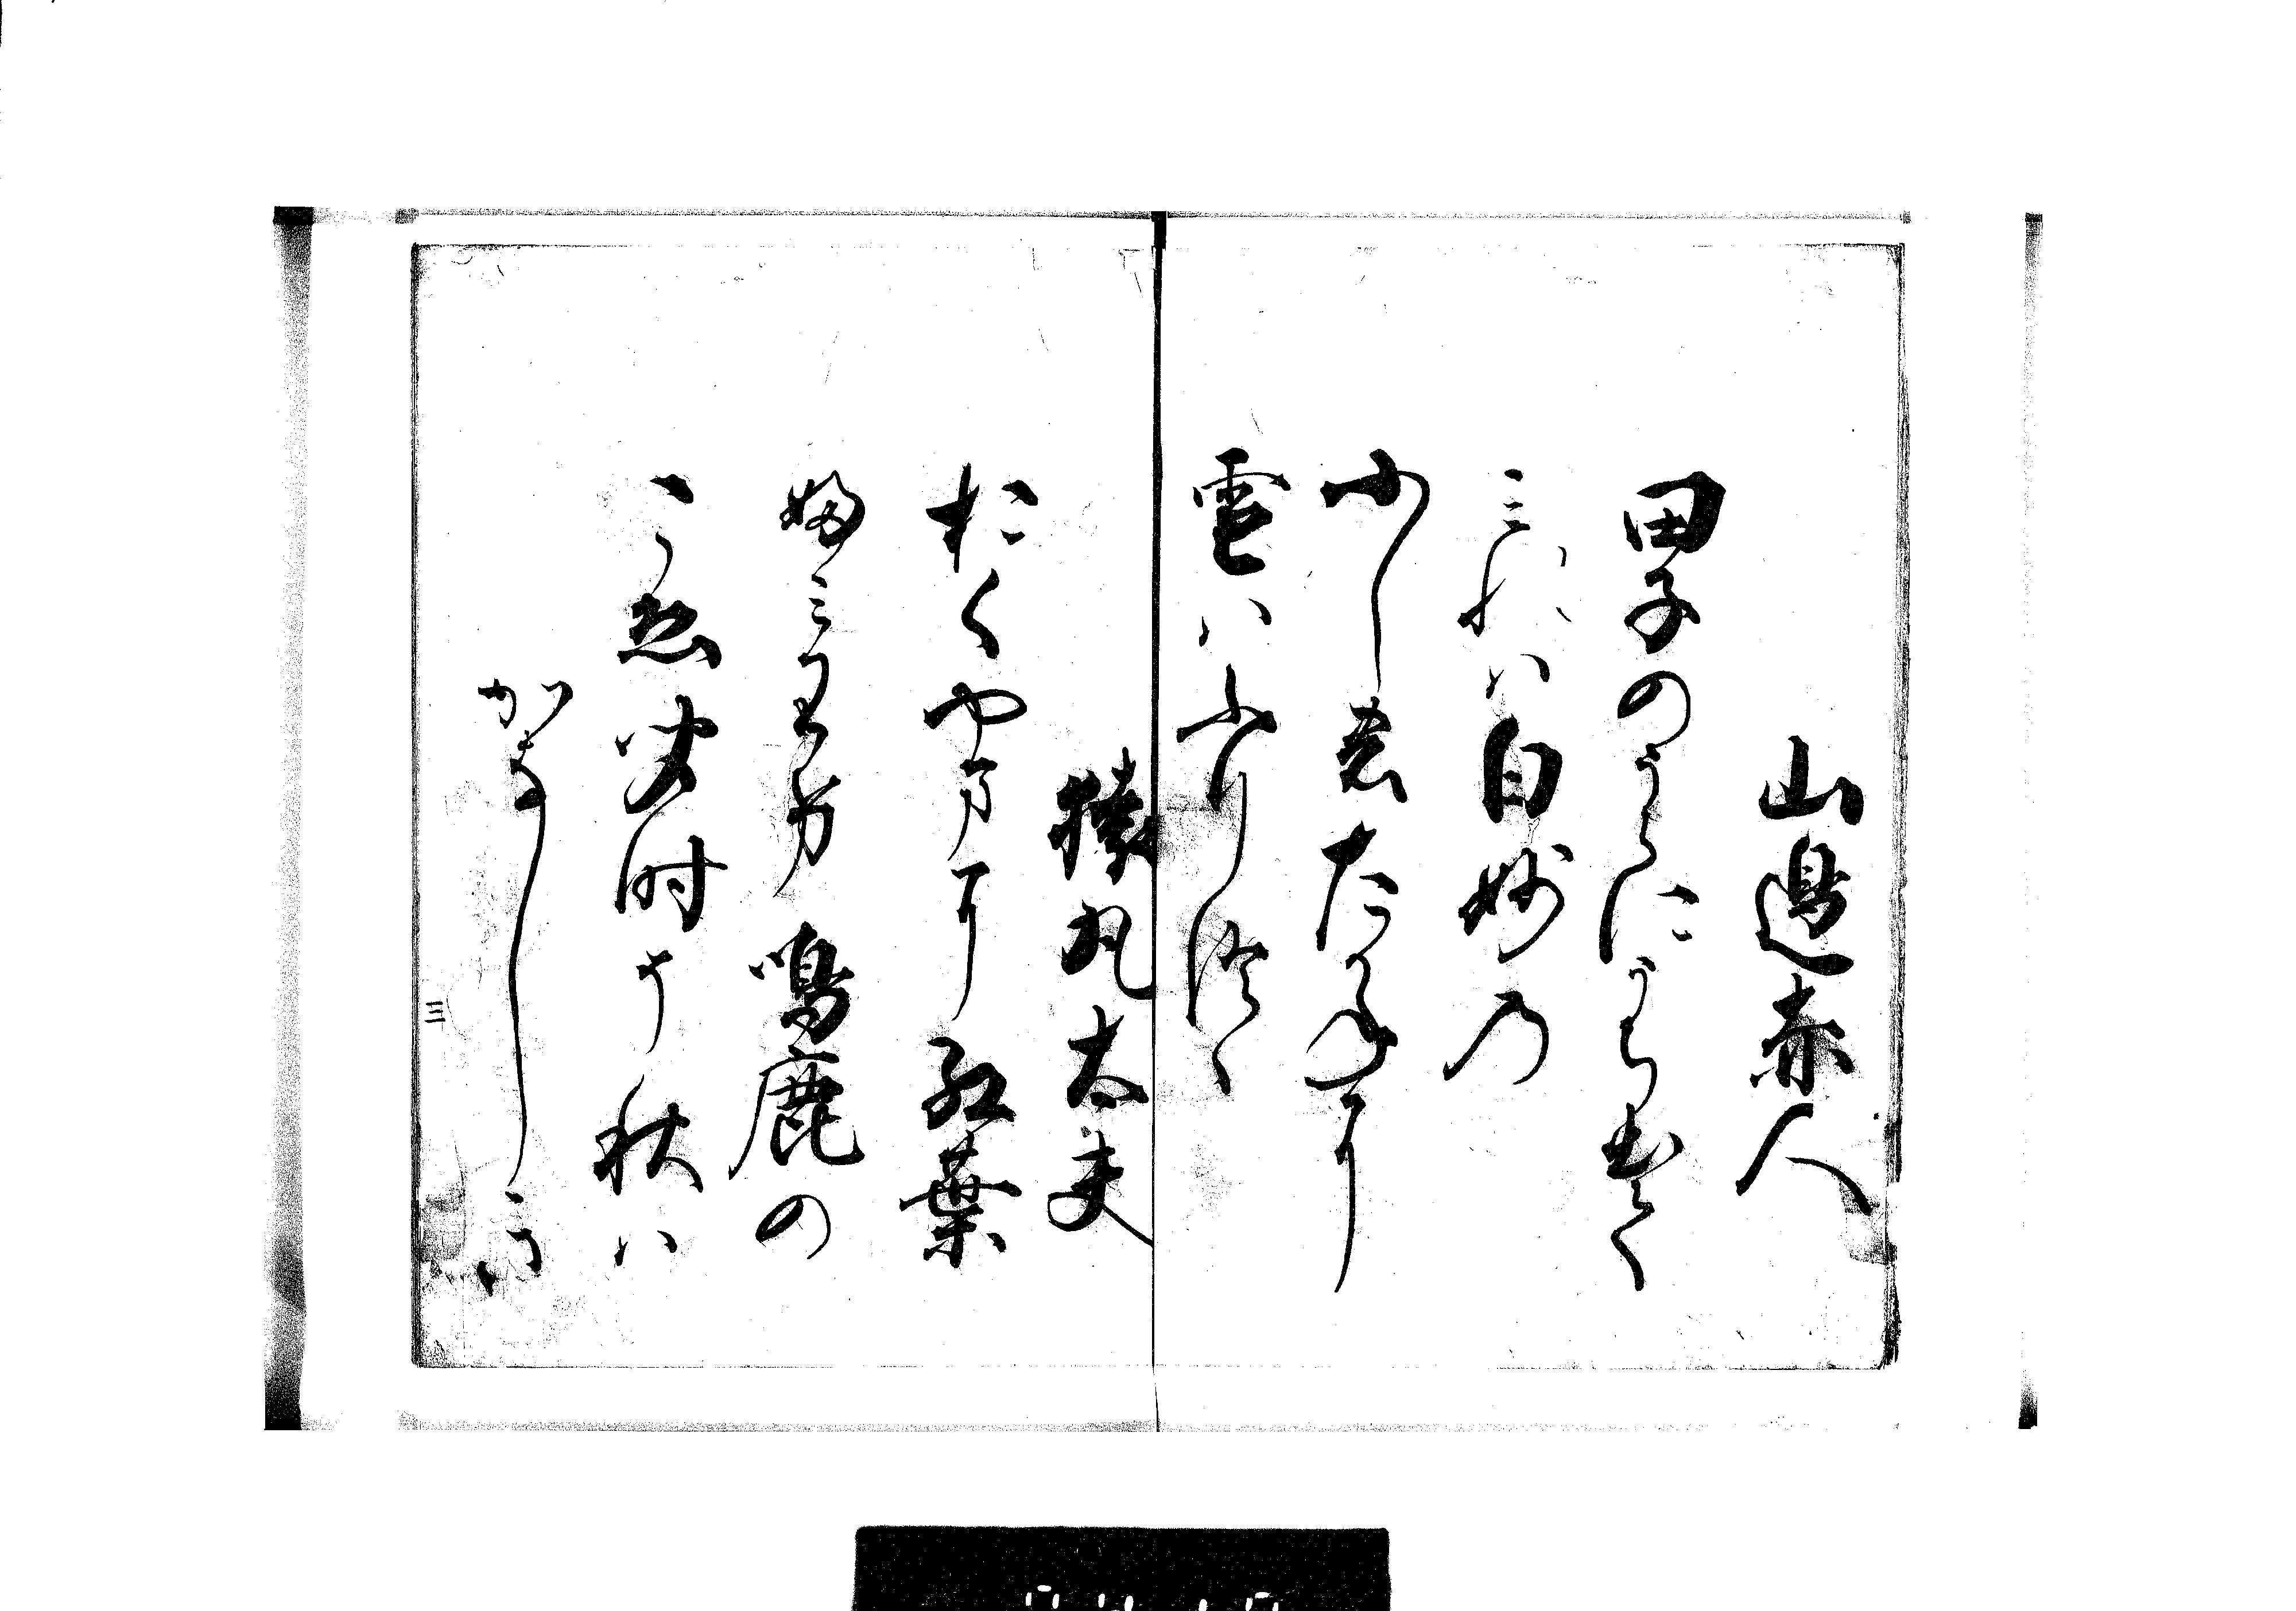 山邉赤人
田子のうらにうち出て
三れハ白妙の
ふしのたかねに
雪ハふりつゝ
猿丸太夫
おくやまに紅葉
婦三王け鳴鹿の
こゑ聞時そ秋ハ
かなしき
三